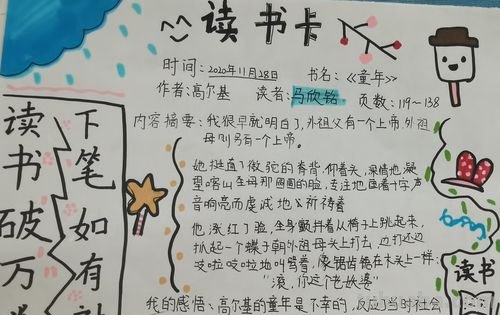 读书卡
时间：2020年11月28日 书名：《童年》
作者：高尔基 读者：马欣铭 页数：119~138
内容摘要：我很早就明白了，外祖父有一个上帝，外祖
母则另有一个上帝。
她挺直了微驼的脊背，仰着头，深情地凝
望喀山圣母那圆圆的脸，专注地画着十字，声
音响亮而虔诚地祈祷着
他涨红了脸，全身颤抖着从椅子上跳起来，
抓起一个碟子朝外祖母头上打去，边打还边
吱啦吱啦地叫骂着，像锯齿锯在木头上一样：
“滚，你这个老妖婆”
我的感悟：高尔基的童年是不幸的，反应了当时社会
读书破万
下笔如有
读书